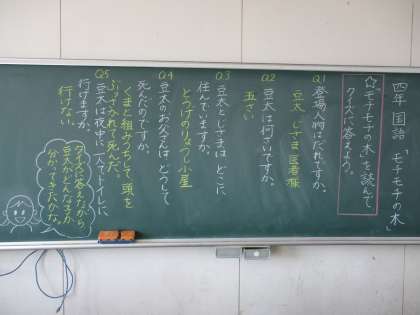 四年 国語 「モチモチの木」
☆「モチモチの木」を読んで
クイズに答えよう。
Q1 登場人物はだれですか。
豆太 じさま 医者様
Q2 豆太は何さいですか。
五さい
Q3 豆太とじさまはどこに
住んでいますか。
とうげのりょうし小屋
Q4 豆太のお父さんはどうして
死んだのですか。
くまと組みうちして、頭を
ぶっさかれて死んだ。
Q5 豆太は夜中に一人でトイレに
行けますか。
行けない。
クイズに答えたから
豆太がどんな子か
分かってきたかな。